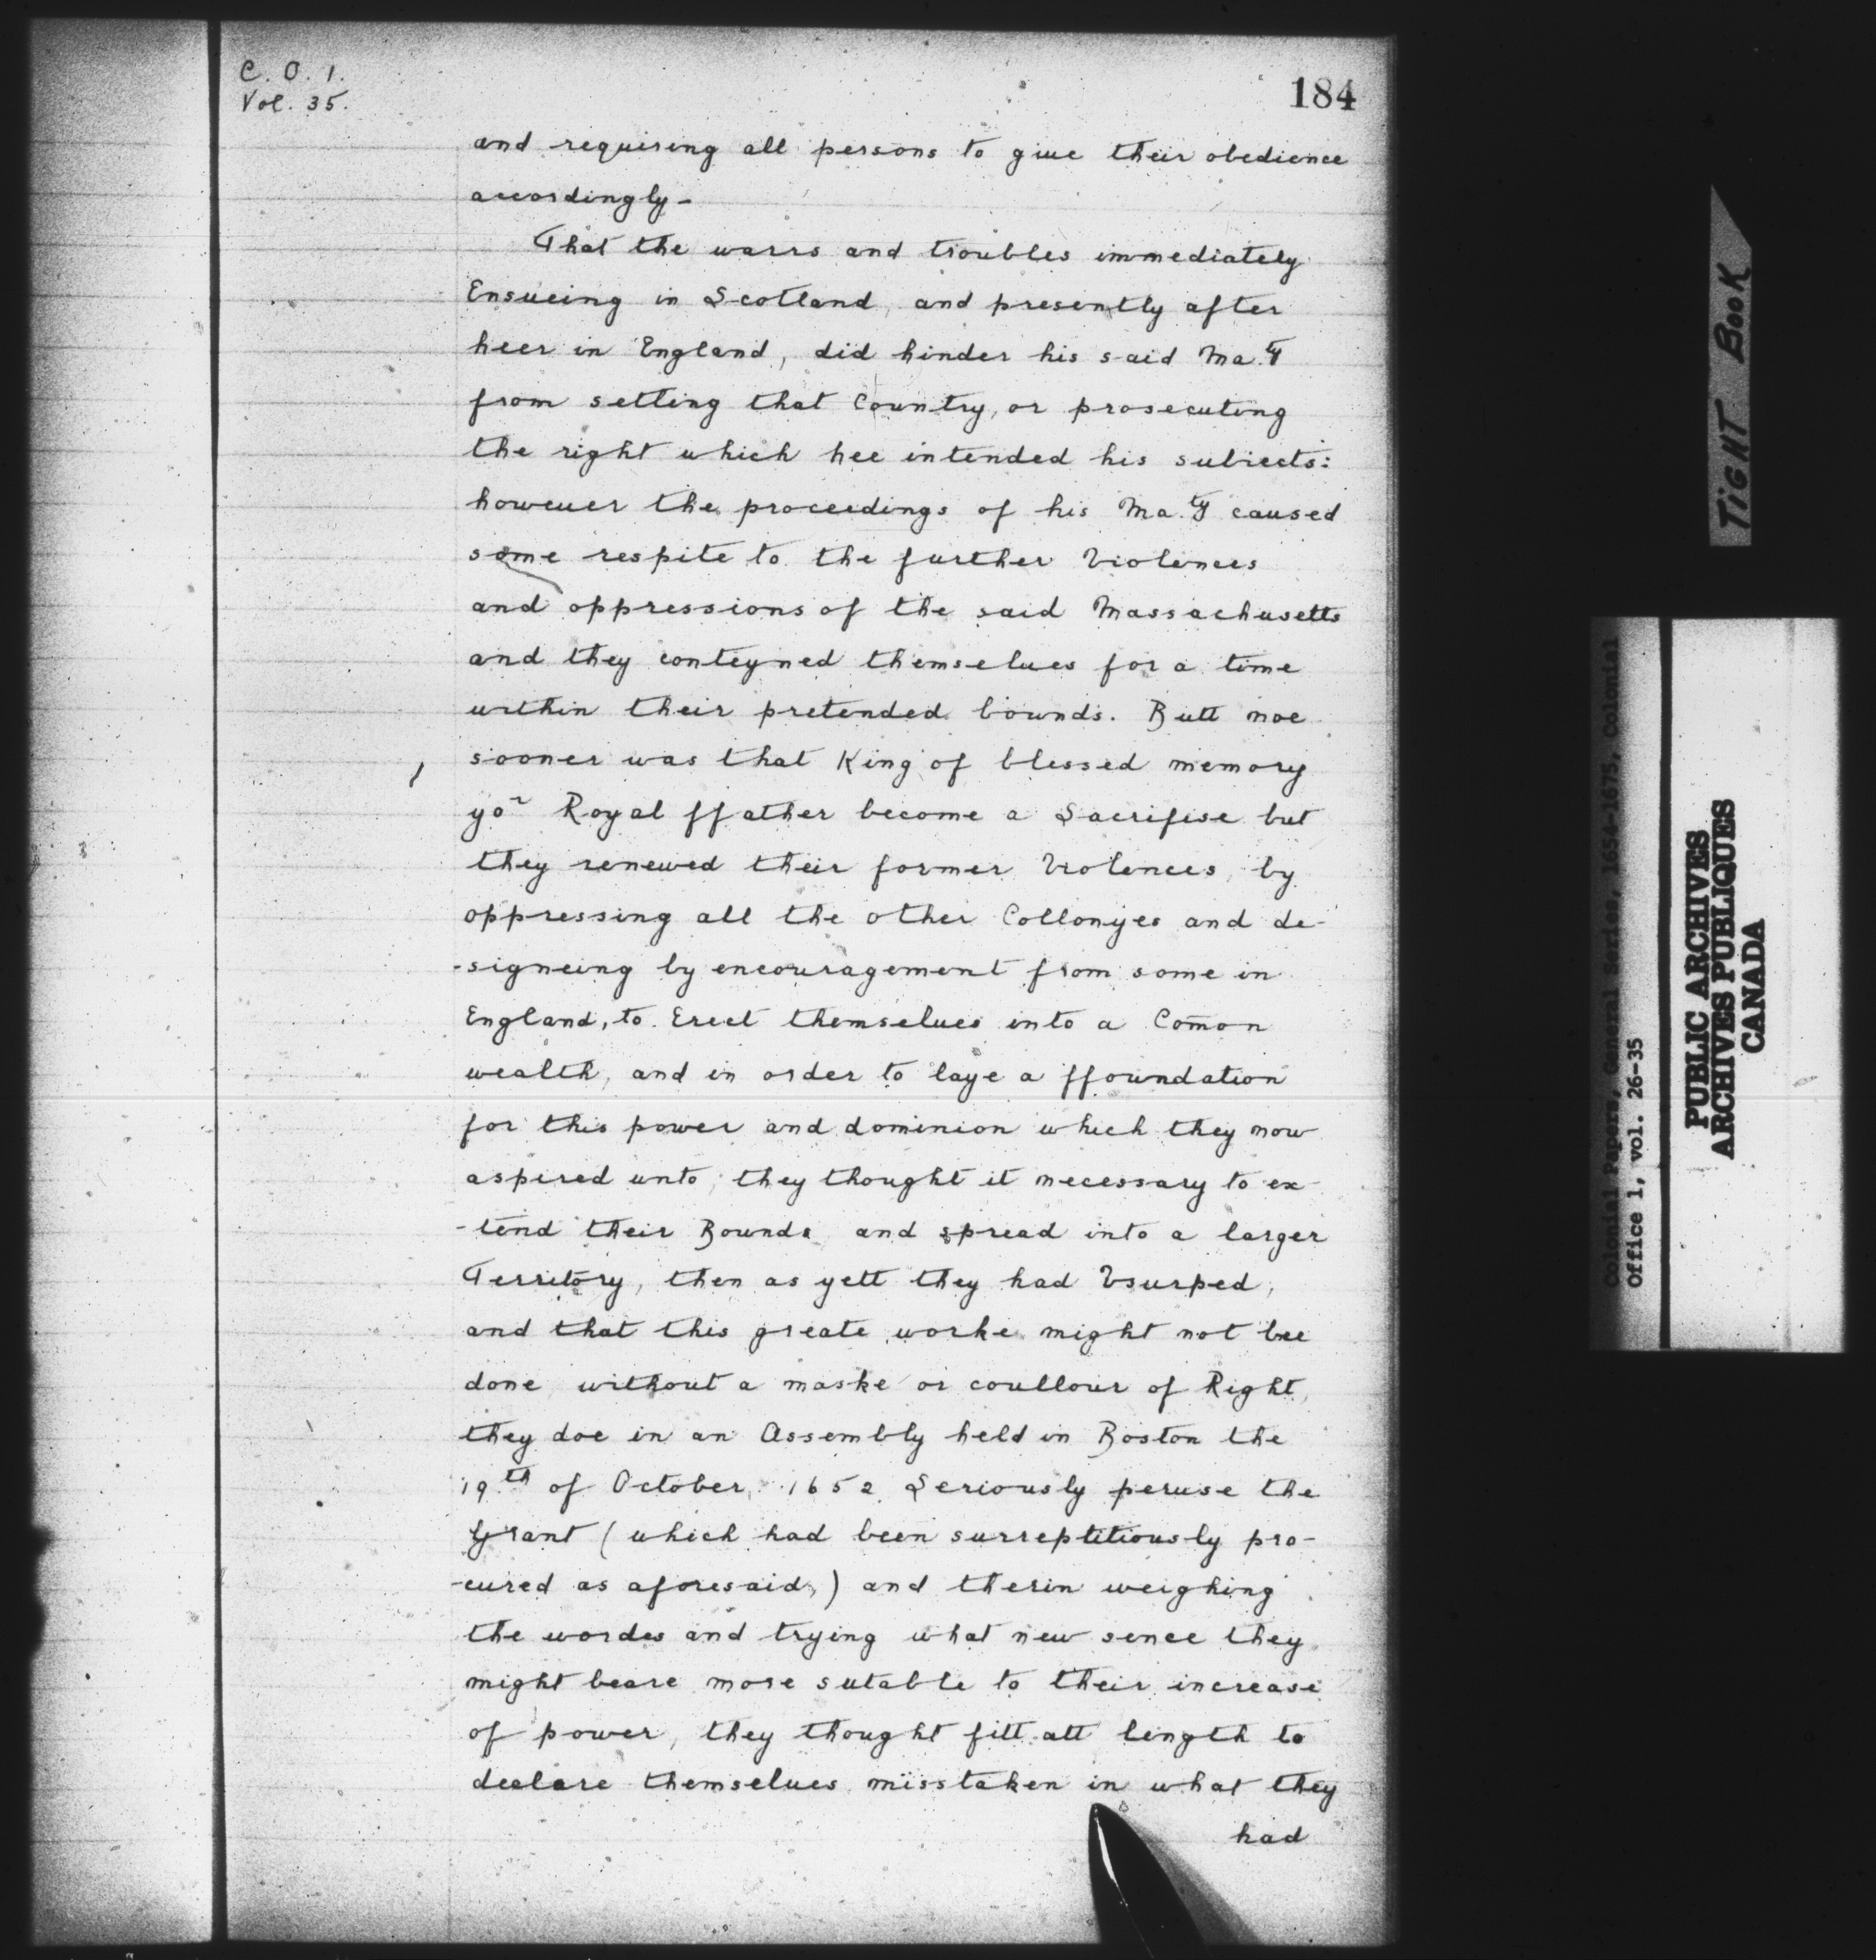 C. O. 1.
Vol. 35.
184
and requiring all persons to giue their obedience
accordingly-
That the warrs and troubles immediately
Ensueing in Scotland, and presently after
heer in England, did hinder his said Ma.ty
from setling that Country, or prosecuting
the right which hee intended his subiects:
howeuer the proceedings of his Ma.ty caused
some respite to the further Violences
and oppressions of the said Massachusetts
and they conteyned themselues for a time
within their pretended bounds. Butt noe
sooner was that King of blessed memory
yor Royal ffather become a Sacrifise but
they renewed their former Violences, by
oppressing all the other Collonyes and de-
-signeing by encouragement from some in
England, to Erect themselues into a Com̄on
wealth, and in order to laye a ffoundation
for this power and dominion which they now
aspired unto, they thought it necessary to ex-
-tend their Bounds and spread into a larger
Territory, then as yett they had Vsurped,
and that this greate worke might not bee
done without a maske or coullour of Right,
they doe in an Assembly held in Boston the
19.th of October, 1652 Seriously peruse the
Grant (which had been surreptitiously pro-
-cured as aforesaid,) and therin weighing
the wordes and trying what new sence they
might beare more sutable to their increase
of power, they thought fitt att length to
declare themselues misstaken in what they
had
TIGHT BOOK
Colonial Papers, General Series, 1654-1675, Colonial
Office 1, vol. 26-35
PUBLIC ARCHIVES
ARCHIVES PUBLIQUES
CANADA